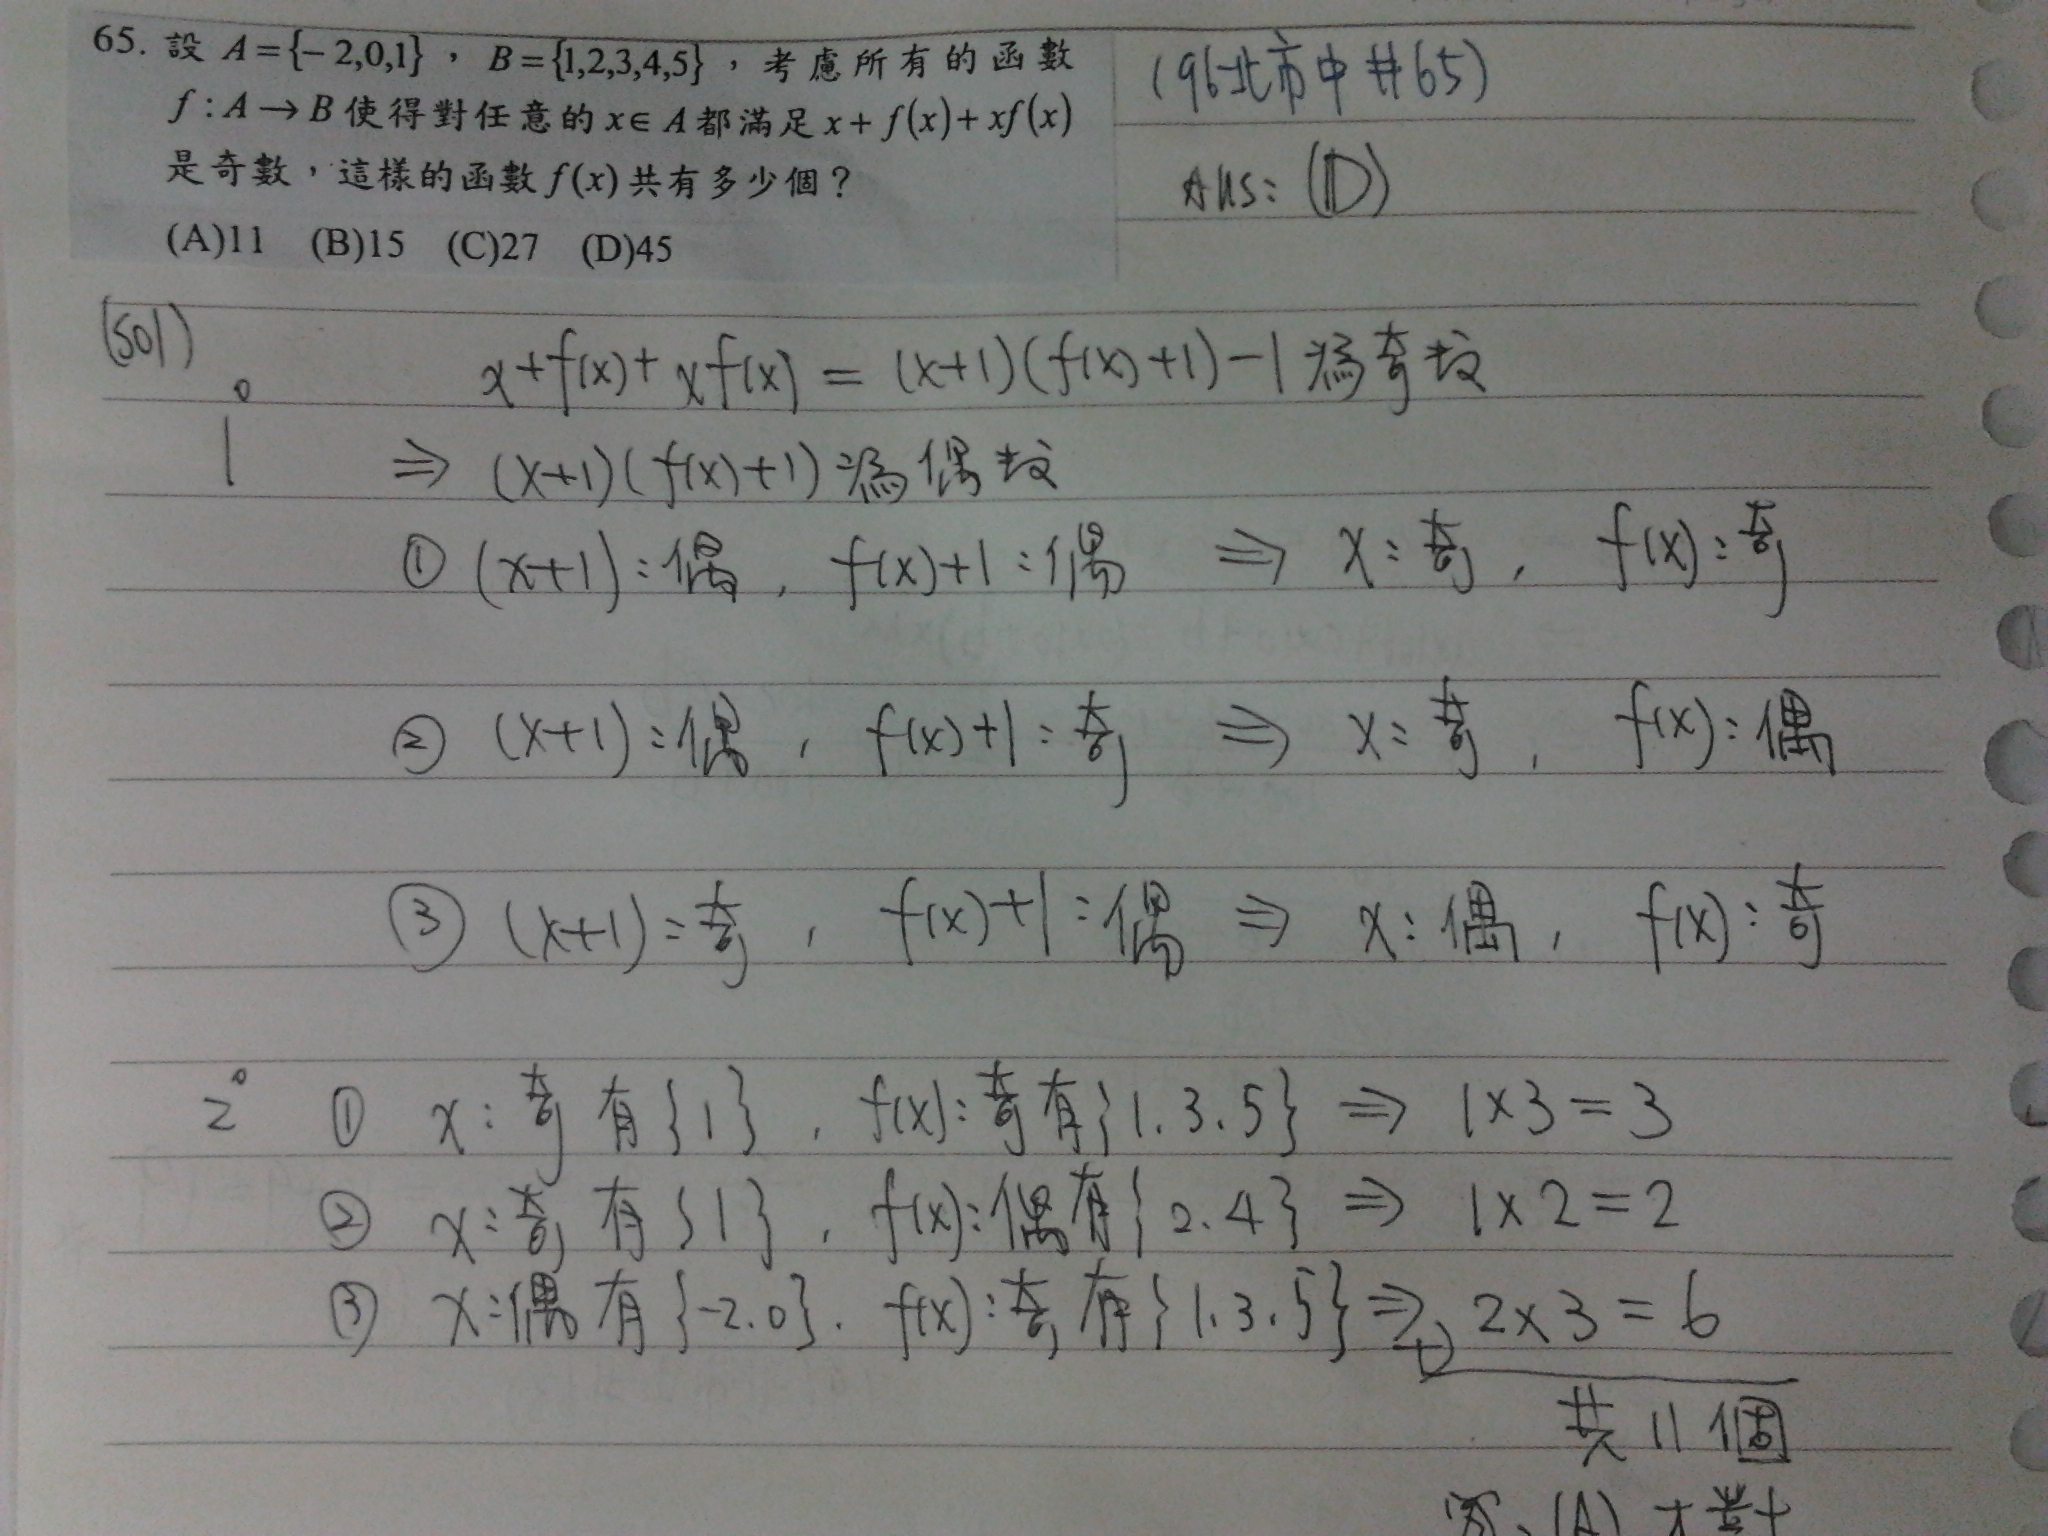 65. 設 A={-2,0,1} , B={1,2,3,4,5} , 考慮所有的函數
f:A→B使得對任意的x∈A都滿足x+f(x)+xf(x)
是奇數,這樣的函數f(x)共有多少個?
(A)11 (B)15 (C)27 (D)45
(96北市中#65)
Ans: (D)
(sol)
1° x+f(x)+xf(x) = (x+1)(f(x)+1)-1 為奇数
⇒ (x+1)(f(x)+1) 為偶数
① (x+1):偶, f(x)+1:偶 ⇒ x:奇, f(x):奇
② (x+1):偶, f(x)+1:奇 ⇒ x:奇, f(x):偶
③ (x+1):奇, f(x)+1:偶 ⇒ x:偶, f(x):奇
2° ① x:奇有{1}, f(x):奇有{1.3.5} ⇒ 1×3=3
② x:奇有{1}, f(x):偶有{2.4} ⇒ 1×2=2
③ x:偶有{-2.0}. f(x):奇有{1.3.5} ⇒ +) 2×3=6
共11個
(A)才對